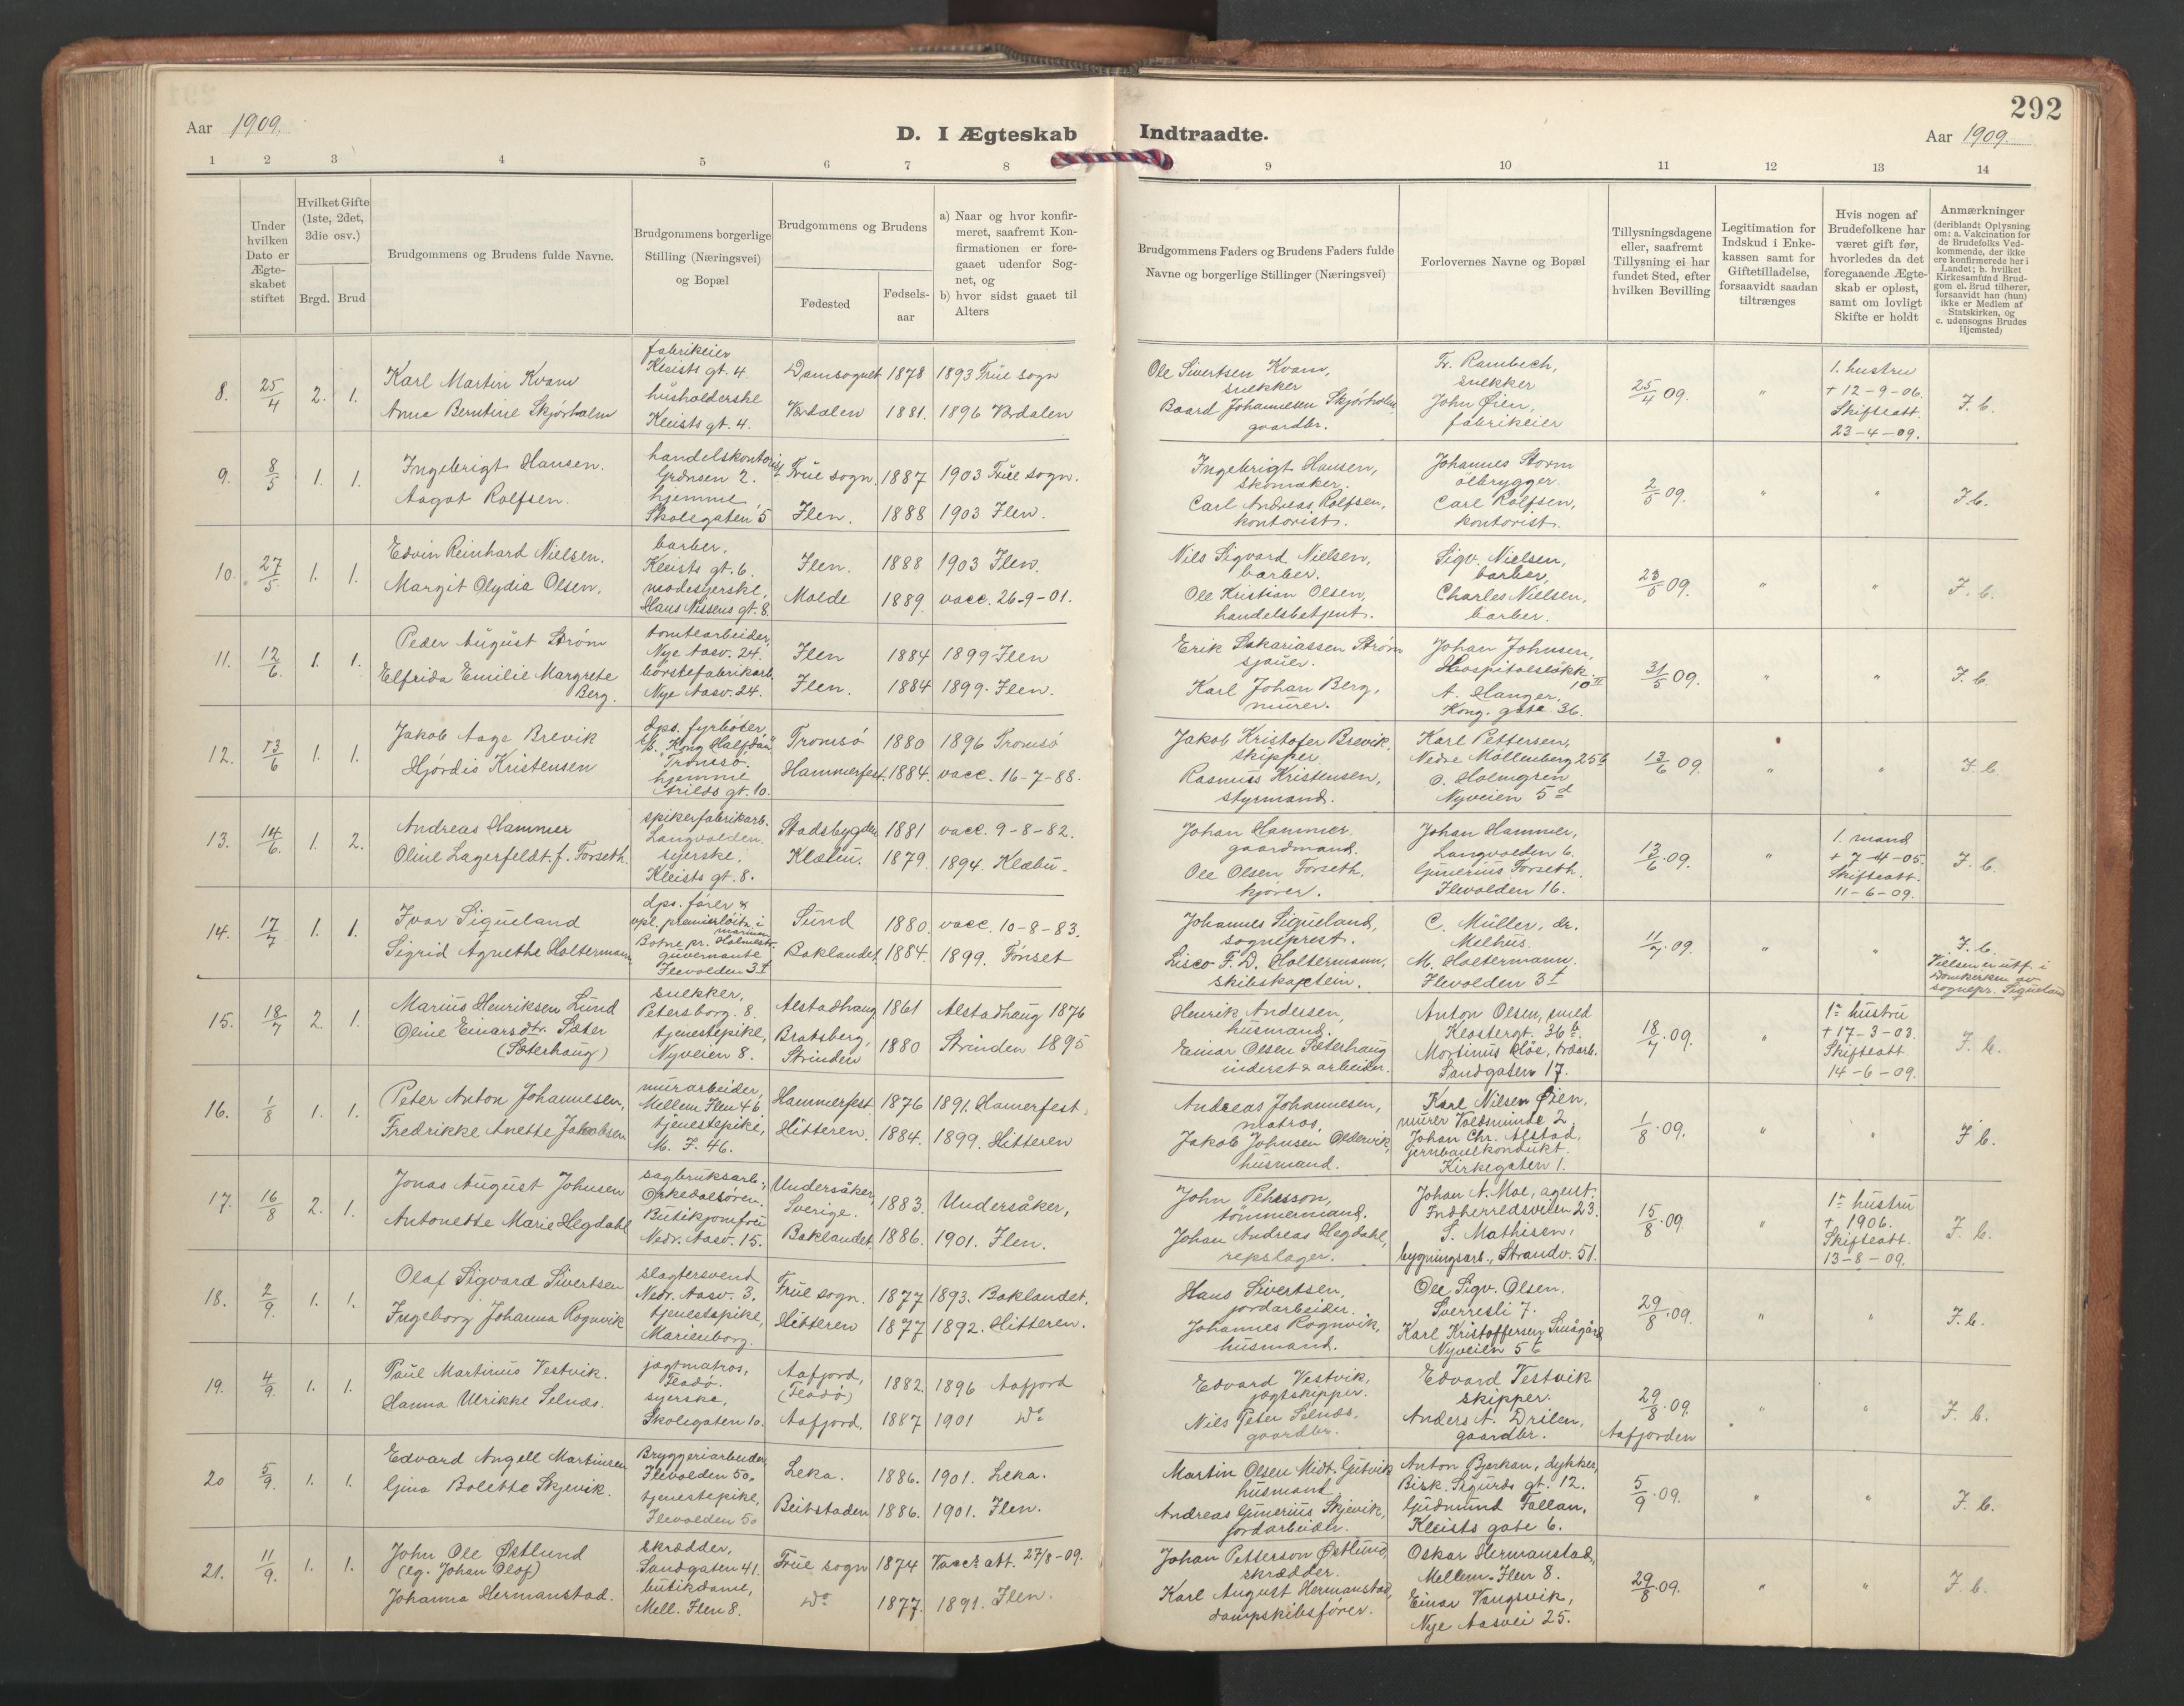 292
Aar 1909.
D. I Ægteskab
Indtraadte.
Aar 1909.
1 2 3 4 5 6 7 8
9 10 11 12 13 14
Under hvilken Dato er Ægteskabet stiftet
Hvilket Gifte (1ste, 2det, 3die osv.)
Brgd. Brud
Brudgommens og Brudens fulde Navne.
Brudgommens borgerlige Stilling (Næringsvei) og Bopæl
Brudgommens og Brudens
Fødested
Fødsels-aar
a) Naar og hvor konfir-
meret, saafremt Kon-
firmationen er fore-
gaaet udenfor Sog-
net, og
b) hvor sidst gaaet til
Alters
Brudgommens Faders og Brudens Faders fulde
Navne og borgerlige Stillinger (Næringsvei)
Forlovernes Navne og Bopæl
Tillysningsdagene
eller, saafremt
Tillysning ei har
fundet Sted, efter
hvilken Bevilling
Legitimation for
Indskud i Enke-
kassen samt for
Giftetilladelse,
forsaavidt saadan
tiltrænges
Hvis nogen af
Brudefolkene har
været gift før,
hvorledes da det
foregaaende Ægte-
skab er opløst,
samt om lovligt
Skifte er holdt
Anmærkninger
(deriblandt Oplysning
om: a. Vakcination for
de Brudefolks Ved-
kommende, der ikke
ere konfirmerede her i
Landet; b. hvilket
Kirkesamfund Brud-
gom el. Brud tilhører,
forsaavidt han (hun)
ikke er Medlem af
Statskirken, og
c. udensogns Brudes
Hjemsted)
8. 25/4 2. 1.
Karl Martin Kvam
Anna Berntine Skjørholm
fabrikeier
Kleists gt. 4.
husholderske
Kleists gt. 4.
Domsognet 1878 1893 Frue sogn
Værdalen 1881. 1896 Værdalen
Ole Sivertsen Kvam,
snekker
Baard Johannesen Skjørholm
gaardbr.
Fr. Rambech,
snekker
John Øien,
fabrikeier
25/4 09.
"
1. hustru
+ 12-9-06.
Skifteatt.
23-4-09.
I. b.
9. 8/5 1. 1.
Ingebrigt Hansen.
Aagot Rolfsen.
handelskontorist
Grønsen 2.
hjemme
Skolegaten 5
Frue sogn. 1887 1903 Frue sogn.
Ilen. 1888 1903 Ilen.
Ingebrigt Hansen,
skomaker.
Carl Andreas Rolfsen,
kontorist.
Johannes Storm
ølbrygger.
Carl Rolfsen,
kontorist.
2/5 09.
" "
I b.
10. 27/5 1. 1.
Edvin Reinhard Nielsen.
Margit Olydia Olsen.
barber,
Kleists gt. 6.
modesyerske,
Hans Nissens gt. 8.
Ilen. 1888 1903 Ilen.
Molde 1889 vacc. 26-9-01.
Nils Sigvard Nielsen,
barber.
Ole Kristian Olsen,
handelsbetjent.
Sigv. Nielsen,
barber,
Charles Nielsen,
barber.
23/5 09.
" "
I. b.
11. 12/6 1. 1.
Peder August Strøm
Elfrida Emilie Margrete
Berg.
tomtearbeider,
Nye Aasv. 24.
børstefabrikarb.
Nye Aasv. 24.
Ilen 1884 1899 Ilen
Ilen. 1884 1899. Ilen.
Erik Sakariassen Strøm
sjauer.
Karl Johan Berg,
murer.
Johan Johnsen,
Hospitalsløkk.
10 II
A. Hanger,
Kong. gate 36.
31/5 09.
" "
I. b
12. 13/6 1. 1.
Jakob Aage Brevik
Hjørdis Kristensen
dps. fyrbøter,
"Kong Halfdan"
Tromsø.
hjemme
Arilds gt. 10.
Tromsø 1880 1896 Tromsø
Hammerfest. 1884. vacc. 16-7-88.
Jakob Kristofer Brevik,
skipper.
Rasmus Kristensen,
styrmand.
Karl Pettersen,
Nedre Møllenberg 25 b
O. Holmgren
Nyveien 5 d
13/6 09.
" "
I. b.
13. 14/6 1. 2.
Andreas Hammer
Oline Lagerfeldt. f. Forseth.
spikerfabrikarb.
Langvolden.
syerske,
Kleists gt. 8.
Stadsbygden 1881 vacc. 9-8-82.
Klæbu. 1879. 1894. Klæbu.
Johan Hammer.
gaardmand.
Ole Olsen Forseth,
kjører.
Johan Hammer,
Langvolden 6.
Gunerius Forseth.
Ilevolden 16.
13/6 09.
"
1. mand
+ 7-4-05.
Skifteatt.
11-6-09.
I. b.
14. 17/7 1. 1.
Ivar Sigueland
Sigrid Agnethe Holtermann
dps. fører &
vpl. premierløitn. i
marinen
Botne pr. Holmestr.
guvernante
Ilevolden 3 t
Sund 1880. vacc. 10-8-83.
Baklandet 1884. 1899. Tønset
Johannes Sigueland,
sogneprest.
Lisco F. D. Holtermann,
skibskaptein.
C. Müller, dr.
Melhus.
M. Holtermann.
Ilevolden 3 t
11/7 09.
" "
I. b.
Vielsen er utf. i
Domkirken av
sognepr. Sigueland
15. 18/7 2. 1.
Marius Henriksen Lund
Oline Einarsdtr. Sæter
(Sæterhaug)
snekker,
Petersborg. 8.
tjenestepike,
Nyveien 8.
Alstadhaug 1861 Alstadhaug 1876
Bratsberg,
Strinden 1880 Strinden 1895
Henrik Andersen,
husmand.
Einar Olsen Sæterhaug
inderst & arbeider.
Anton Olsen, smed
Klostergt. 36 b.
Martinus Kløe, træarb.
Sandgaten 17.
18/7 09.
"
1e hustru
+ 17-3-03.
Skifteatt.
14-6-09.
I. b.
16. 1/8 1. 1.
Peter Anton Johannesen,
Fredrikke Anette Jakobsen
murarbeider,
Mellem Ilen 46
tjenestepike,
M. I. 46.
Hammerfest 1876 1891. Hamerfest.
Hitteren. 1884. 1899. Hitteren
Andreas Johannesen,
matros,
Jakob Johnsen Oldervik,
husmand.
Karl Nilsen Øien,
murer Voldsminde 2,
Johan Chr. Alstad,
jernbanekondukt.
Kirkegaten 1.
1/8 09.
" "
I b.
17. 16/8 2. 1.
Jonas August Johnsen
Antonette Marie Hegdahl
sagbruksarb.,
Orkedalsøren.
Butikjomfru
Nedr. Aasv. 15.
Undersåker,
Sverige. 1883. Undersåker,
Baklandet. 1886. 1901. Ilen.
John Pehrsson,
tømmermand.
Johan Andreas Hegdahl,
repslager.
Johan N. Moe, agent.
Indherredsveien 23.
S. Mathisen,
bygningsarb., Strandv. 51.
15/8 09.
"
1e hustru
+ 1906.
Skifteatt.
13-8-09.
I. b.
18. 2/9. 1. 1.
Olaf Sigvard Sivertsen
Ingeborg Johanna Rognvik
slagtersvend
Nedr. Aasv. 3.
tjenestepike,
Marienborg.
Frue sogn. 1877 1893. Baklandet.
Hitteren 1877 1892. Hitteren.
Hans Sivertsen,
jordarbeider.
Johannes Rognvik,
husmand.
Ole Sigv. Olsen.
Sverresli 7.
Karl Kristoffersen Smågård
Nyveien 5 b
29/8 09.
" "
I. b.
19. 4/9. 1. 1.
Paul Martinus Vestvik.
Hanna Ulrikke Selnæs.
jagtmatros,
Teadø.
syerske,
Skolegaten 10.
Aafjord,
(Teadø) 1882. 1896 Aafjord
Aafjord. 1887 1901 do
Edvard Vestvik,
jagtskipper.
Nils Peter Selnæs,
gaardbr.
Edvard Vestvik
skipper.
Anders A. Drilen,
gaardbr.
29/8 09.
Aafjorden
" "
I. b.
20 5/9. 1. 1.
Edvard Angell Martinsen
Gina Bolette Skjevik.
Bryggeriarbeider
Ilevolden 50.
tjenestepike,
Ilevolden 50
Leka. 1886. 1901. Leka.
Beitstaden 1886. 1901. Ilen.
Martin Olsen Midt. Gutvik
husmand
Andreas Gunerius Skjevik,
jordarbeider.
Anton Bjørkan, dykker,
Bisk. Sigurds gt. 12.
Gudmund Fallan,
Kleists gate 6.
5/9 09.
" "
I. b.
21. 11/9. 1. 1.
John Ole Østlund
(eg. Johan Olof)
Johanna Hermanstad.
skrædder,
Sandgaten 41.
butikdame,
Mell. Ilen 8.
Frue sogn 1874 Vacc. att. 27/8-09.
do 1877. 1891. Ilen.
Johan Petterson Østlund,
skrædder.
Karl August Hermanstad,
dampskibsfører.
Oskar Hermanstad,
Mellem-Ilen 8.
Einar Vangsvik,
Nye Aasvei 25.
29/8 09.
" "
I. b.